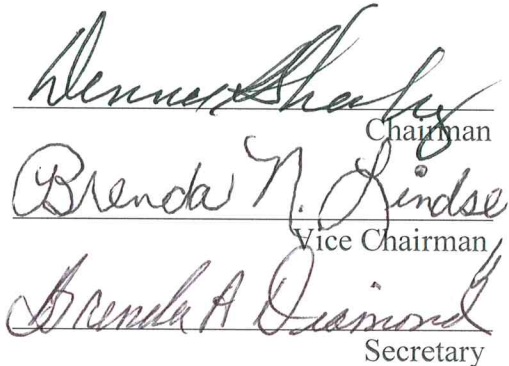 Chairman
Brenda N. Lindse
Vice Chairman
Brenda A Diamond
Secretary